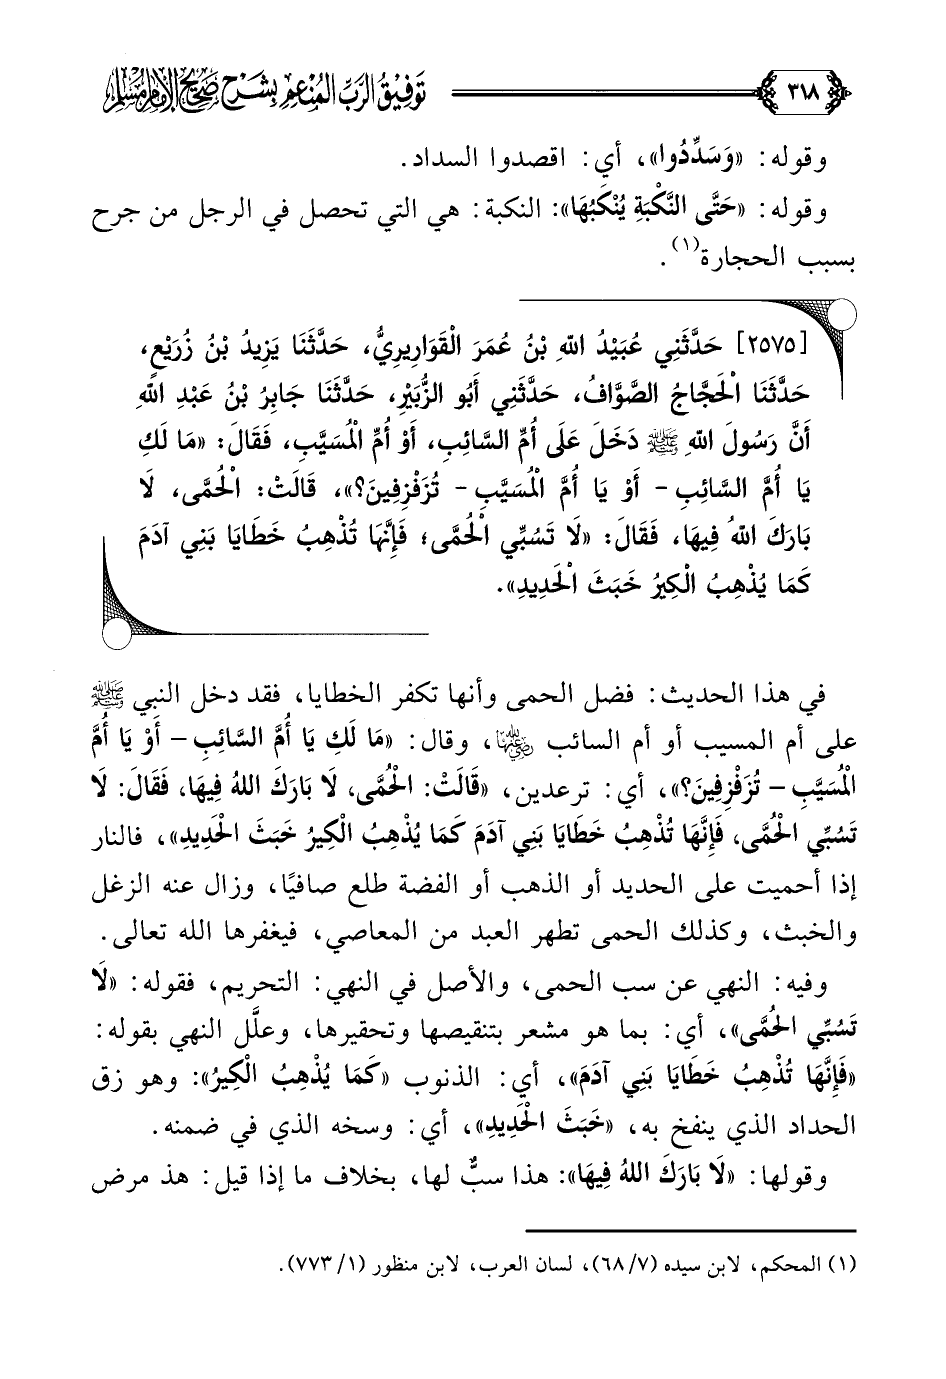 ٣١٨ توفيق الرب المنعم بشرح صحيح الإمام مسلم
وقوله: «وَسَدِّدُوا»، أي: اقصدوا السداد.
وقوله: «حَتَّى النَّكْبَةِ يُنْكَبُهَا»: النكبة: هي التي تحصل في الرجل من جرح
بسبب الحجارة(١).
[٢٥٧٥] حَدَّثَنِي عُبَيْدُ اللهِ بْنُ عُمَرَ الْقَوَارِيرِيُّ، حَدَّثَنَا يَزِيدُ بْنُ زُرَيْعٍ،
حَدَّثَنَا الْحَجَّاجُ الصَّوَّافُ، حَدَّثَنِي أَبُو الزُّبَيْرِ، حَدَّثَنَا جَابِرُ بْنُ عَبْدِ اللهِ
أَنَّ رَسُولَ اللهِ ﷺ دَخَلَ عَلَى أُمِّ السَّائِبِ، أَوْ أُمِّ الْمُسَيَّبِ، فَقَالَ: «مَا لَكِ
يَا أُمَّ السَّائِبِ - أَوْ يَا أُمَّ الْمُسَيَّبِ - تُزَفْزِفِينَ؟»، قَالَتْ: الْحُمَّى، لَا
بَارَكَ اللهُ فِيهَا، فَقَالَ: «لَا تَسُبِّي الْحُمَّى؛ فَإِنَّهَا تُذْهِبُ خَطَايَا بَنِي آدَمَ
كَمَا يُذْهِبُ الْكِيرُ خَبَثَ الْحَدِيدِ».
في هذا الحديث: فضل الحمى وأنها تكفر الخطايا، فقد دخل النبي ﷺ
على أم المسيب أو أم السائب رضي الله عنها، وقال: «مَا لَكِ يَا أُمَّ السَّائِبِ - أَوْ يَا أُمَّ
الْمُسَيَّبِ - تُزَفْزِفِينَ؟»، أي: ترعدين، «قَالَتْ: الْحُمَّى، لَا بَارَكَ اللهُ فِيهَا، فَقَالَ: لَا
تَسُبِّي الْحُمَّى، فَإِنَّهَا تُذْهِبُ خَطَايَا بَنِي آدَمَ كَمَا يُذْهِبُ الْكِيرُ خَبَثَ الْحَدِيدِ»، فالنار
إذا أحميت على الحديد أو الذهب أو الفضة طلع صافيًا، وزال عنه الزغل
والخبث، وكذلك الحمى تطهر العبد من المعاصي، فيغفرها الله تعالى.
وفيه: النهي عن سب الحمى، والأصل في النهي: التحريم، فقوله: «لَا
تَسُبِّي الْحُمَّى»، أي: بما هو مشعر بتنقيصها وتحقيرها، وعلَّل النهي بقوله:
«فَإِنَّهَا تُذْهِبُ خَطَايَا بَنِي آدَمَ»، أي: الذنوب «كَمَا يُذْهِبُ الْكِيرُ»: وهو زق
الحداد الذي ينفخ به، «خَبَثَ الْحَدِيدِ»، أي: وسخه الذي في ضمنه.
وقولها: «لَا بَارَكَ اللهُ فِيهَا»: هذا سبٌّ لها، بخلاف ما إذا قيل: هذ مرض
(١) المحكم، لابن سيده (٧/ ٦٨)، لسان العرب، لابن منظور (١/ ٧٧٣).